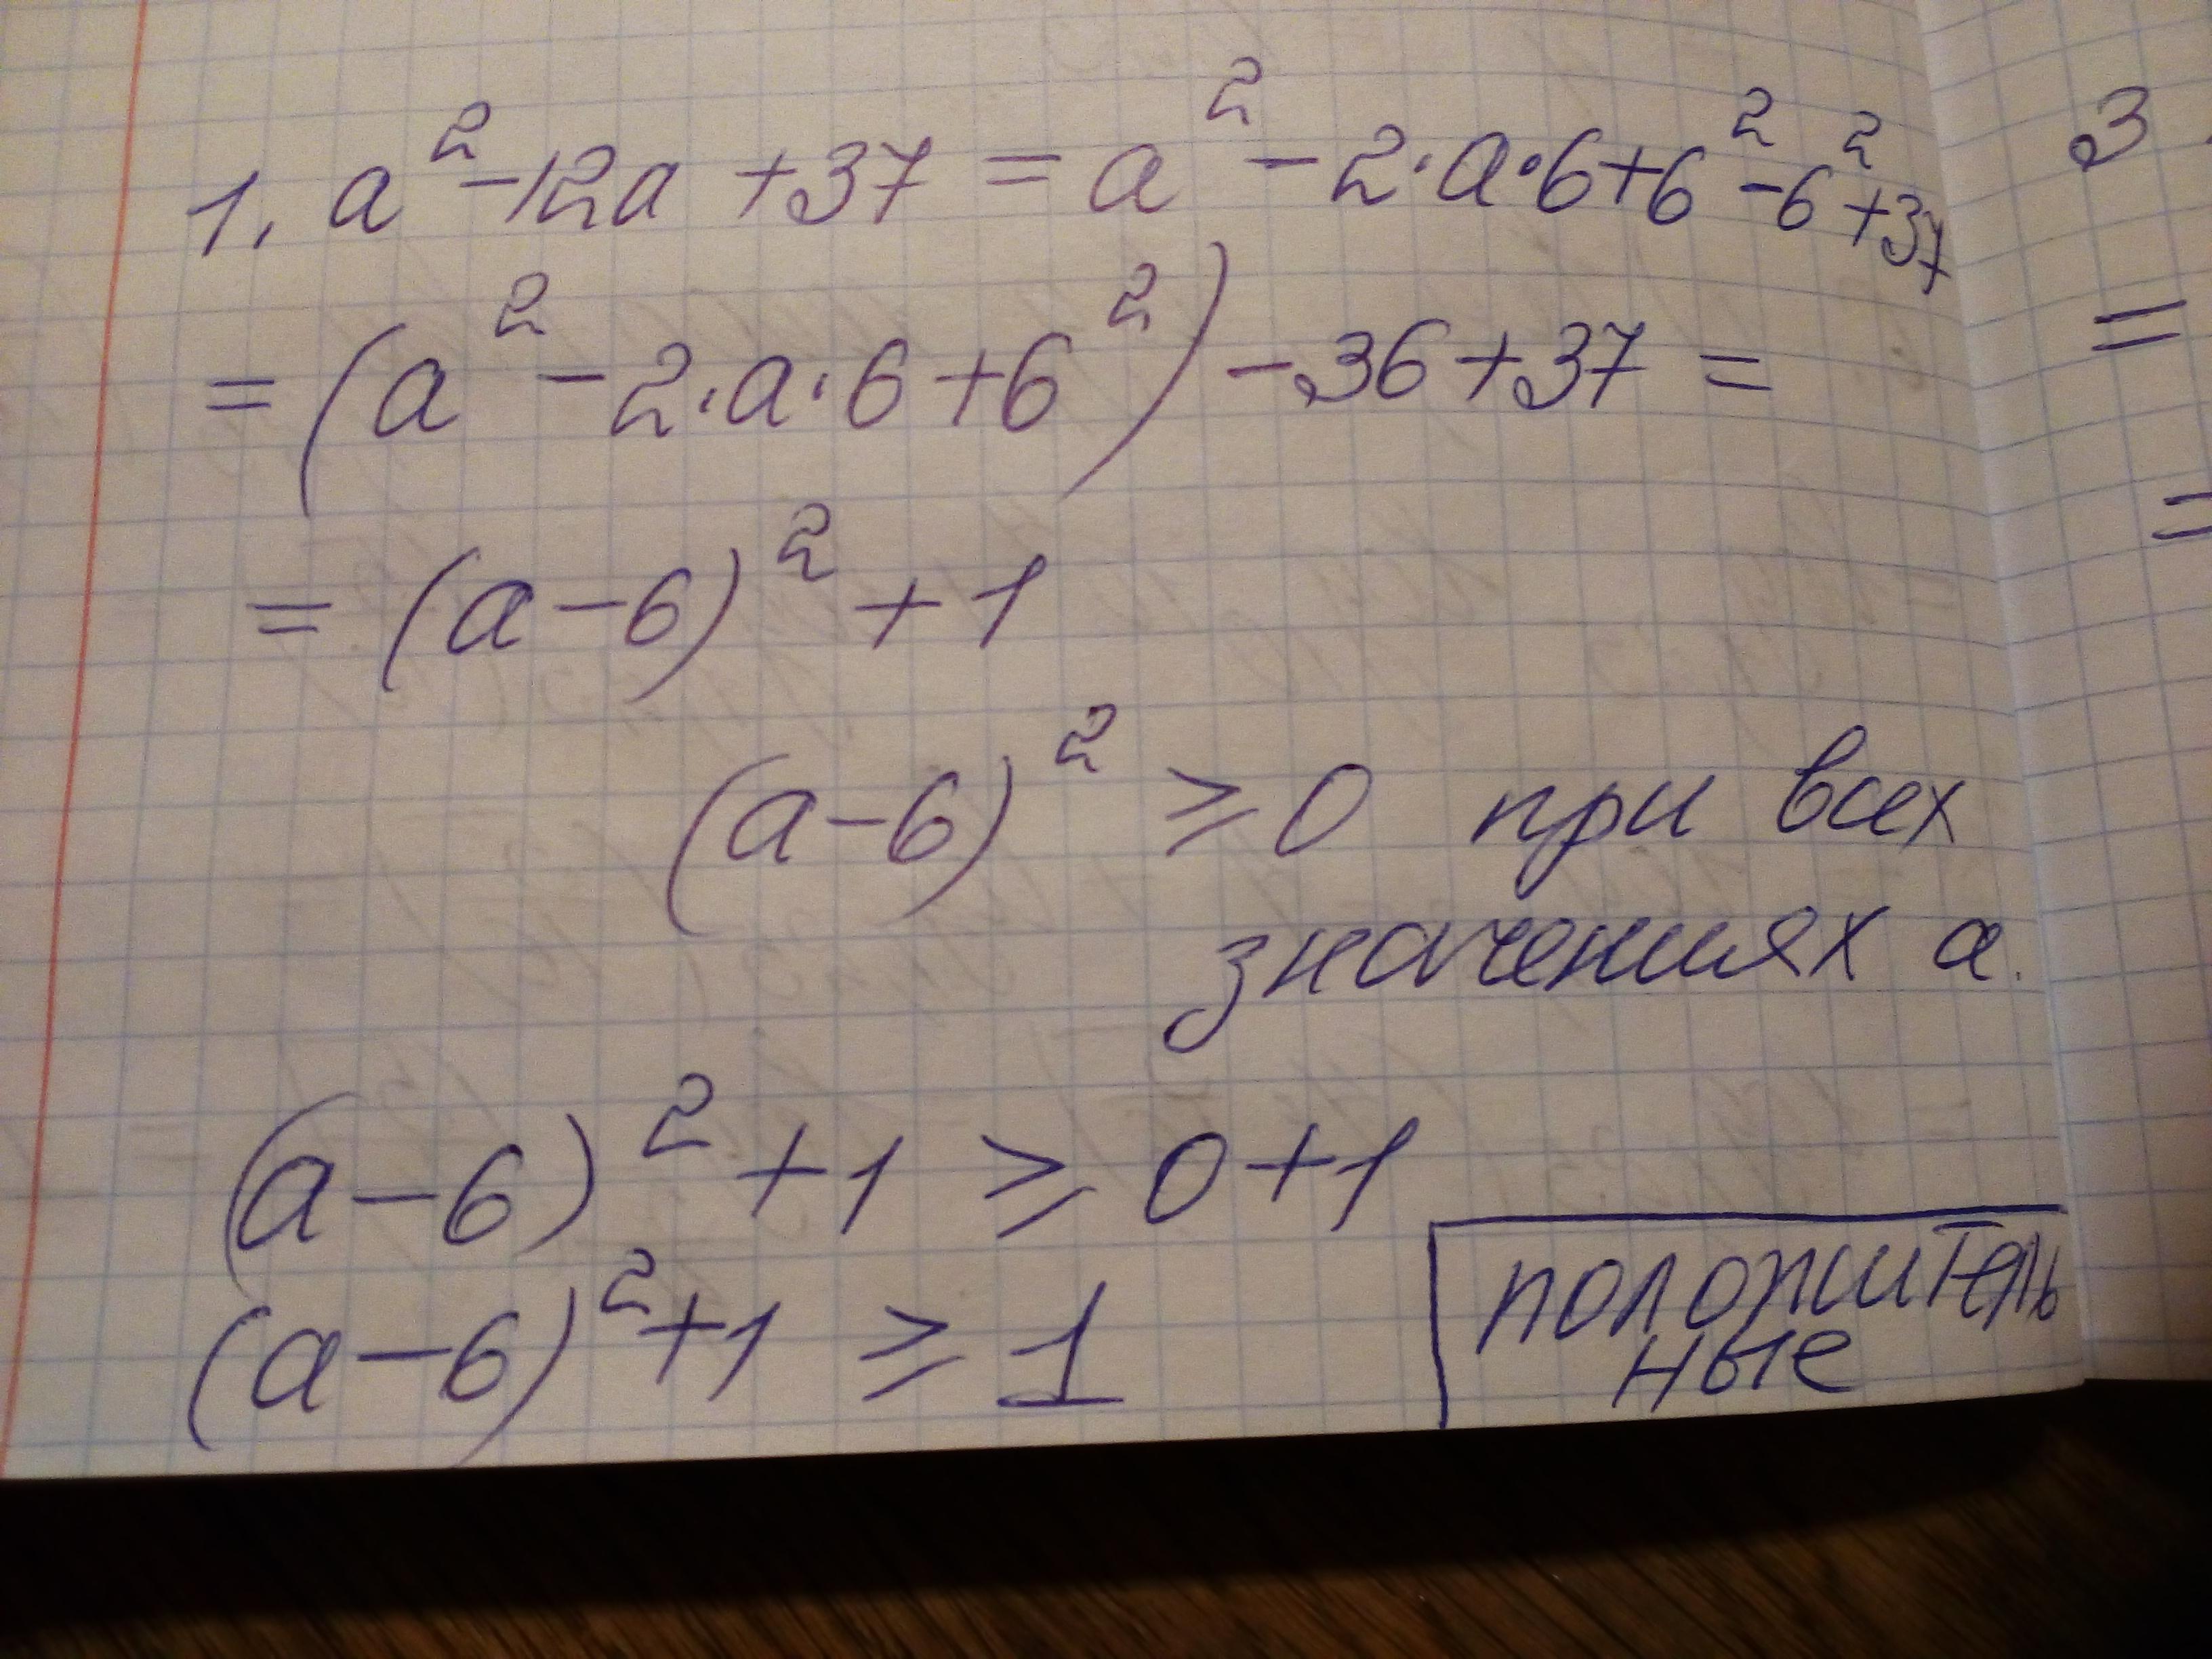 1. a² - 12a + 37 = a² - 2·a·6 + 6² - 6² + 37
= (a² - 2·a·6 + 6²) - 36 + 37 =
= (a - 6)² + 1
(a - 6)² ⩾ 0 при всех
значениях а.
(a - 6)² + 1 ⩾ 0 + 1
(a - 6)² + 1 ⩾ 1
положитель
ные
3.
=
=